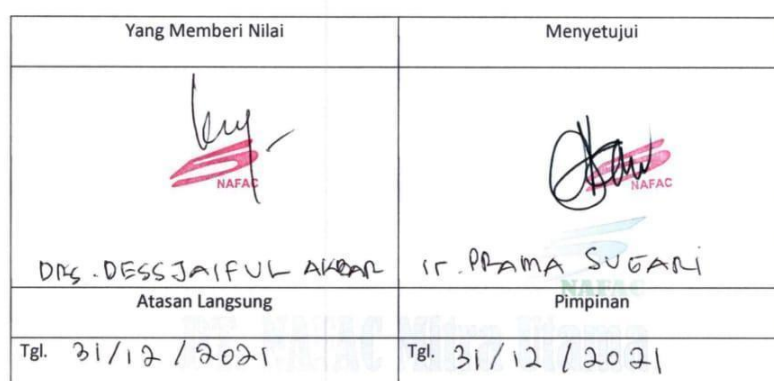 Yang Memberi Nilai
Menyetujui
NAFAC
NAFAC
Drs. DESSJAIFUL AKBAR
Ir. PRAMA SUGARI
NAFAC
Atasan Langsung
Pimpinan
Tgl. 31/12/2021
Tgl. 31/12/2021